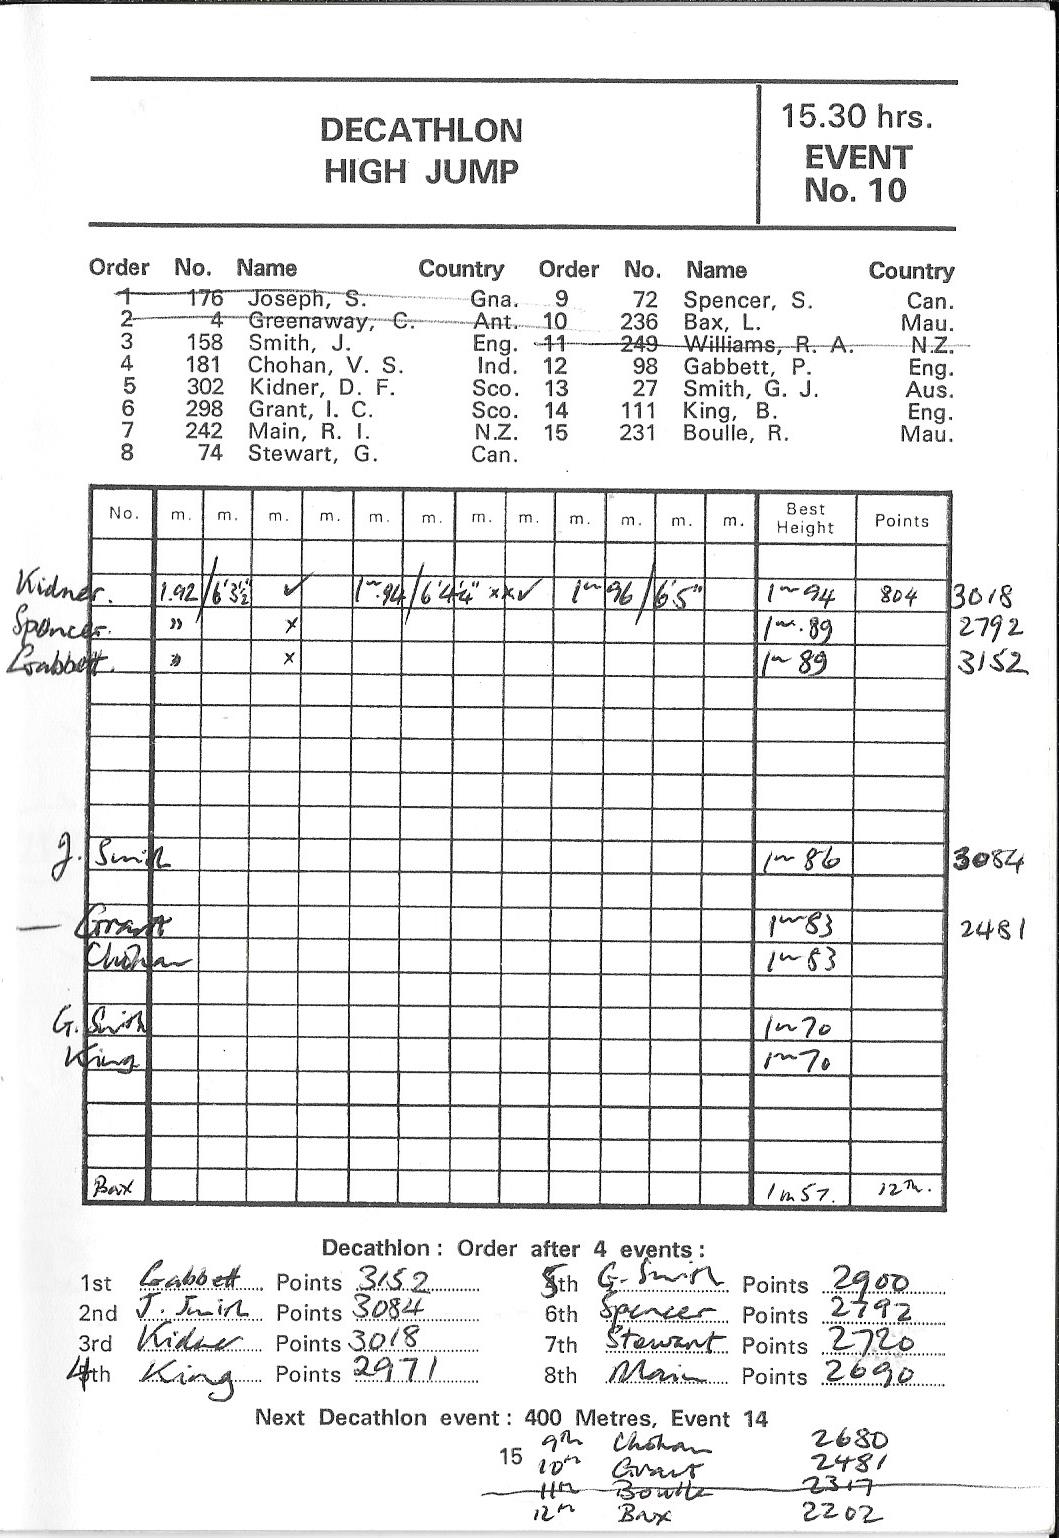 DECATHLON
HIGH JUMP
15.30 hrs.
EVENT
No. 10
Order No. Name Country Order No. Name Country
1 176 Joseph, S. Gna. 9 72 Spencer, S. Can.
2 4 Greenaway, C. Ant. 10 236 Bax, L. Mau.
3 158 Smith, J. Eng. 11 249 Williams, R. A. N.Z.
4 181 Chohan, V. S. Ind. 12 98 Gabbett, P. Eng.
5 302 Kidner, D. F. Sco. 13 27 Smith, G. J. Aus.
6 298 Grant, I. C. Sco. 14 111 King, B. Eng.
7 242 Main, R. I. N.Z. 15 231 Boulle, R. Mau.
8 74 Stewart, G. Can.
No. m. m. m. m. m. m. m. m. m. m. m. m. Best Height Points
Kidner. 1.92/6'3½" ✓ 1m.94/6'4¼" xx✓ 1m96/6'5" 1m94 804 3018
Spencer. " x 1m.89 2792
Gabbett. " x 1m89 3152
J. Smith 1m86 3084
— Grant 1m83 2481
Chohan 1m83
G. Smith 1m70
King 1m70
Bax 1m57. 12th.
Decathlon: Order after 4 events:
1st Gabbett Points 3152 5th G. Smith Points 2900
2nd J. Smith Points 3084 6th Spencer Points 2792
3rd Kidner Points 3018 7th Stewart Points 2720
4th King Points 2971 8th Main Points 2690
Next Decathlon event: 400 Metres, Event 14
15
9th Chohan 2680
10th Grant 2481
11th Boulle 2317
12th Bax 2202